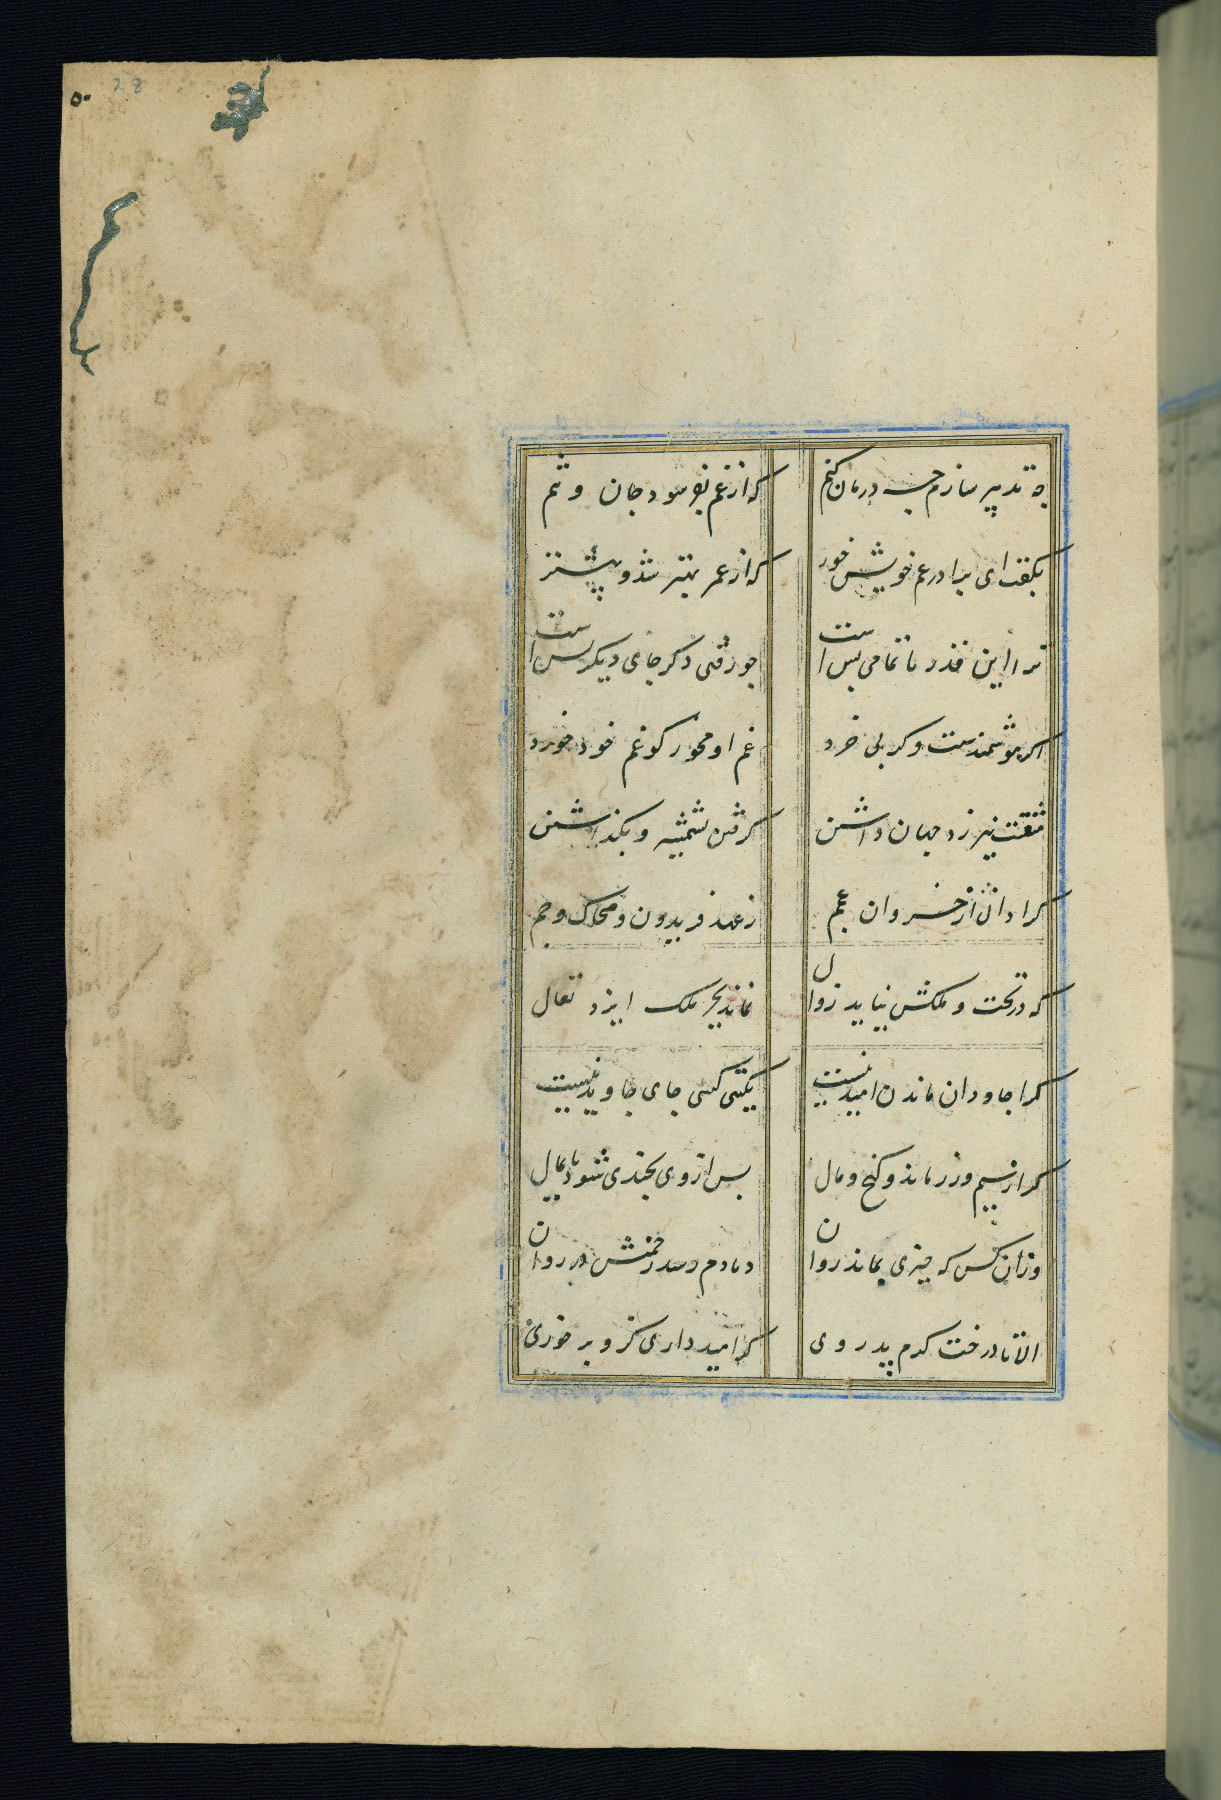 ۵۰ 28
چه تدبیر سازم چه درمان کنم که از غم بفرسود جان و تنم
بکفت ای برادر غم خویش خور که از عمر بهتر شد و بیشتر
ترا این قدر تا تمامی بس است چو رفتی دکر جای دیکر کس است
اکر هوشمندست وکر بی خرد غم او مخور کو غم خود خورد
مشقت نیرزد جهان داشتن کرفتن بشمشیر و بکذاشتن
کرا دانی از خسروان عجم ز عهد فریدون و ضحاک و جم
که در تخت و ملکش نیاید زوال نماند بجز ملک ایزد تعال
کرا جاودان ماندن امید نیست بکیتی کسی جای جاوید نیست
کرا سیم و زر ماند و کنج و مال پس از وی بچندی شود پایمال
وزان کس که چیزی بماند روان دمادم رسد رحمتش بر روان
الا تا درخت کرم پروری کر امید داری کزو برخوری